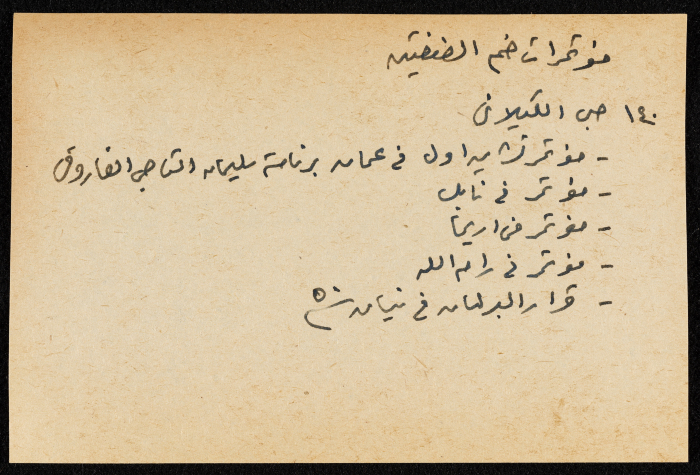 مؤتمرات ضم الضفتين
١٤٠ ص الكيلاني
- مؤتمر تشرين اول في عمان برئاسة سليمان التاجي الفاروقي
- مؤتمر في نابلس
- مؤتمر في اريحا
- مؤتمر في رام الله
- قرار البرلمان في نيسان ٥٠